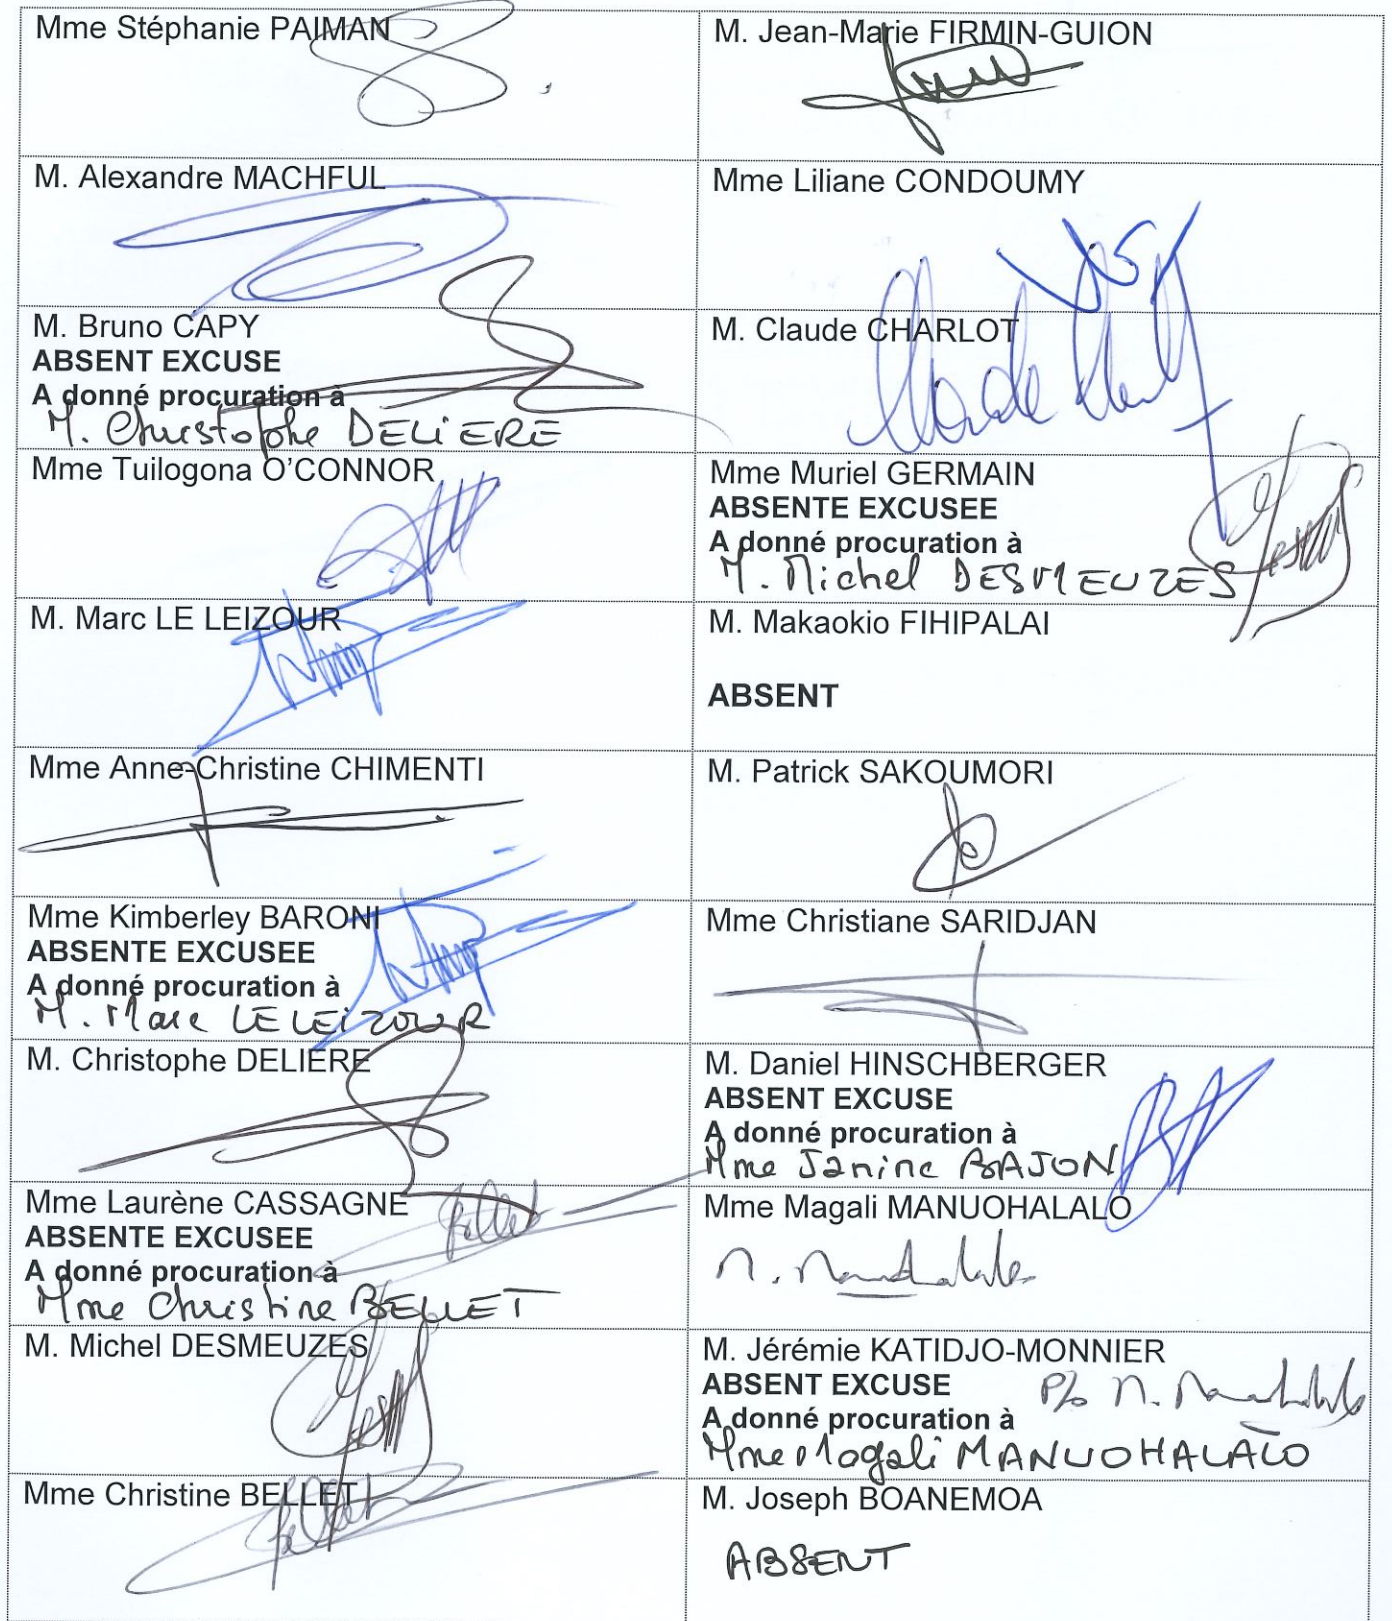 Mme Stéphanie PAIMAN
M. Jean-Marie FIRMIN-GUION
M. Alexandre MACHFUL
Mme Liliane CONDOUMY
M. Bruno CAPY
ABSENT EXCUSE
A donné procuration à
M. Christophe DELIERE
M. Claude CHARLOT
Mme Tuilogona O'CONNOR
Mme Muriel GERMAIN
ABSENTE EXCUSEE
A donné procuration à
M. Michel DESMEUZES
M. Marc LE LEIZOUR
M. Makaokio FIHIPALAI
ABSENT
Mme Anne-Christine CHIMENTI
M. Patrick SAKOUMORI
Mme Kimberley BARONI
ABSENTE EXCUSEE
A donné procuration à
M. Marc LE LEIZOUR
Mme Christiane SARIDJAN
M. Christophe DELIERE
M. Daniel HINSCHBERGER
ABSENT EXCUSE
A donné procuration à
Mme Janine BAJON
Mme Laurène CASSAGNE
ABSENTE EXCUSEE
A donné procuration à
Mme Christine BELLET
Mme Magali MANUOHALALO
M. Michel DESMEUZES
M. Jérémie KATIDJO-MONNIER
ABSENT EXCUSE
A donné procuration à
Mme Magali MANUOHALALO
Mme Christine BELLET
M. Joseph BOANEMOA
ABSENT